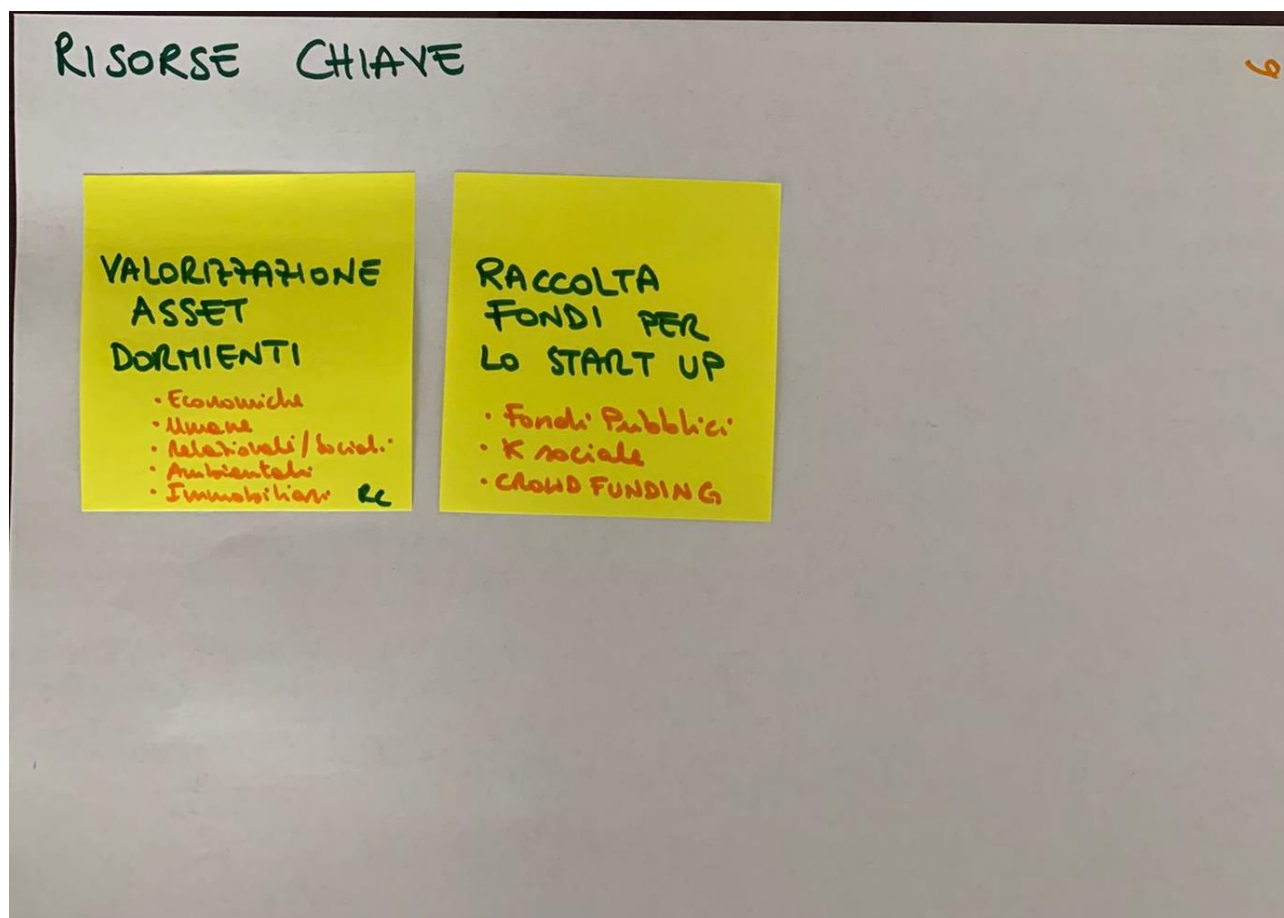 RISORSE CHIAVE
6
VALORIZZAZIONE
ASSET
DORMIENTI
· Economiche
· Umane
· Relazionali/Sociali
· Ambientali
· Immobiliari RC
RACCOLTA
FONDI PER
LO START UP
· Fondi Pubblici
· K sociale
· CROWD FUNDING